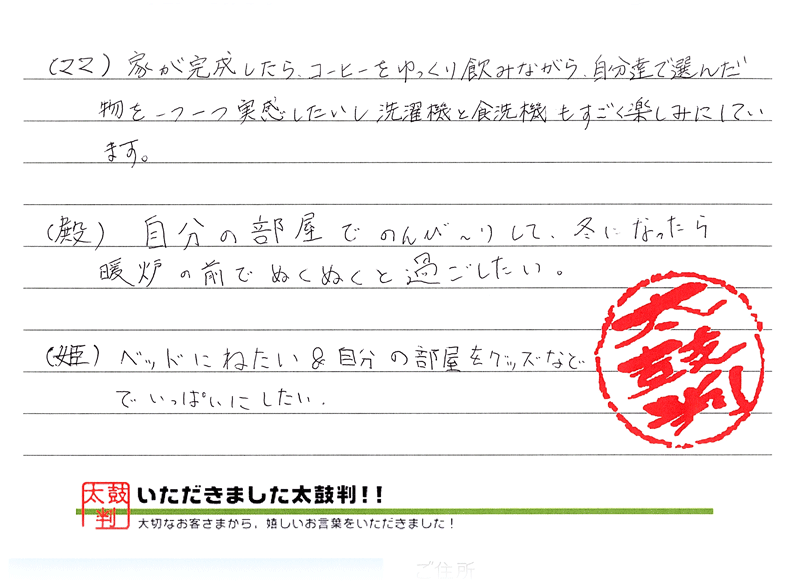 (ママ) 家が完成したら、コーヒーをゆっくり飲みながら、自分達で選んだ
物を一つ一つ実感したいし洗濯機と食洗機もすごく楽しみにしてい
ます。
(殿) 自分の部屋でのんび〜りして、冬になったら
暖炉の前でぬくぬくと過ごしたい。
(姫) ベッドにねたい&自分の部屋をグッズなど
でいっぱいにしたい.
太鼓判
太鼓
判
いただきました太鼓判!!
大切なお客さまから、嬉しいお言葉をいただきました!
ご住所